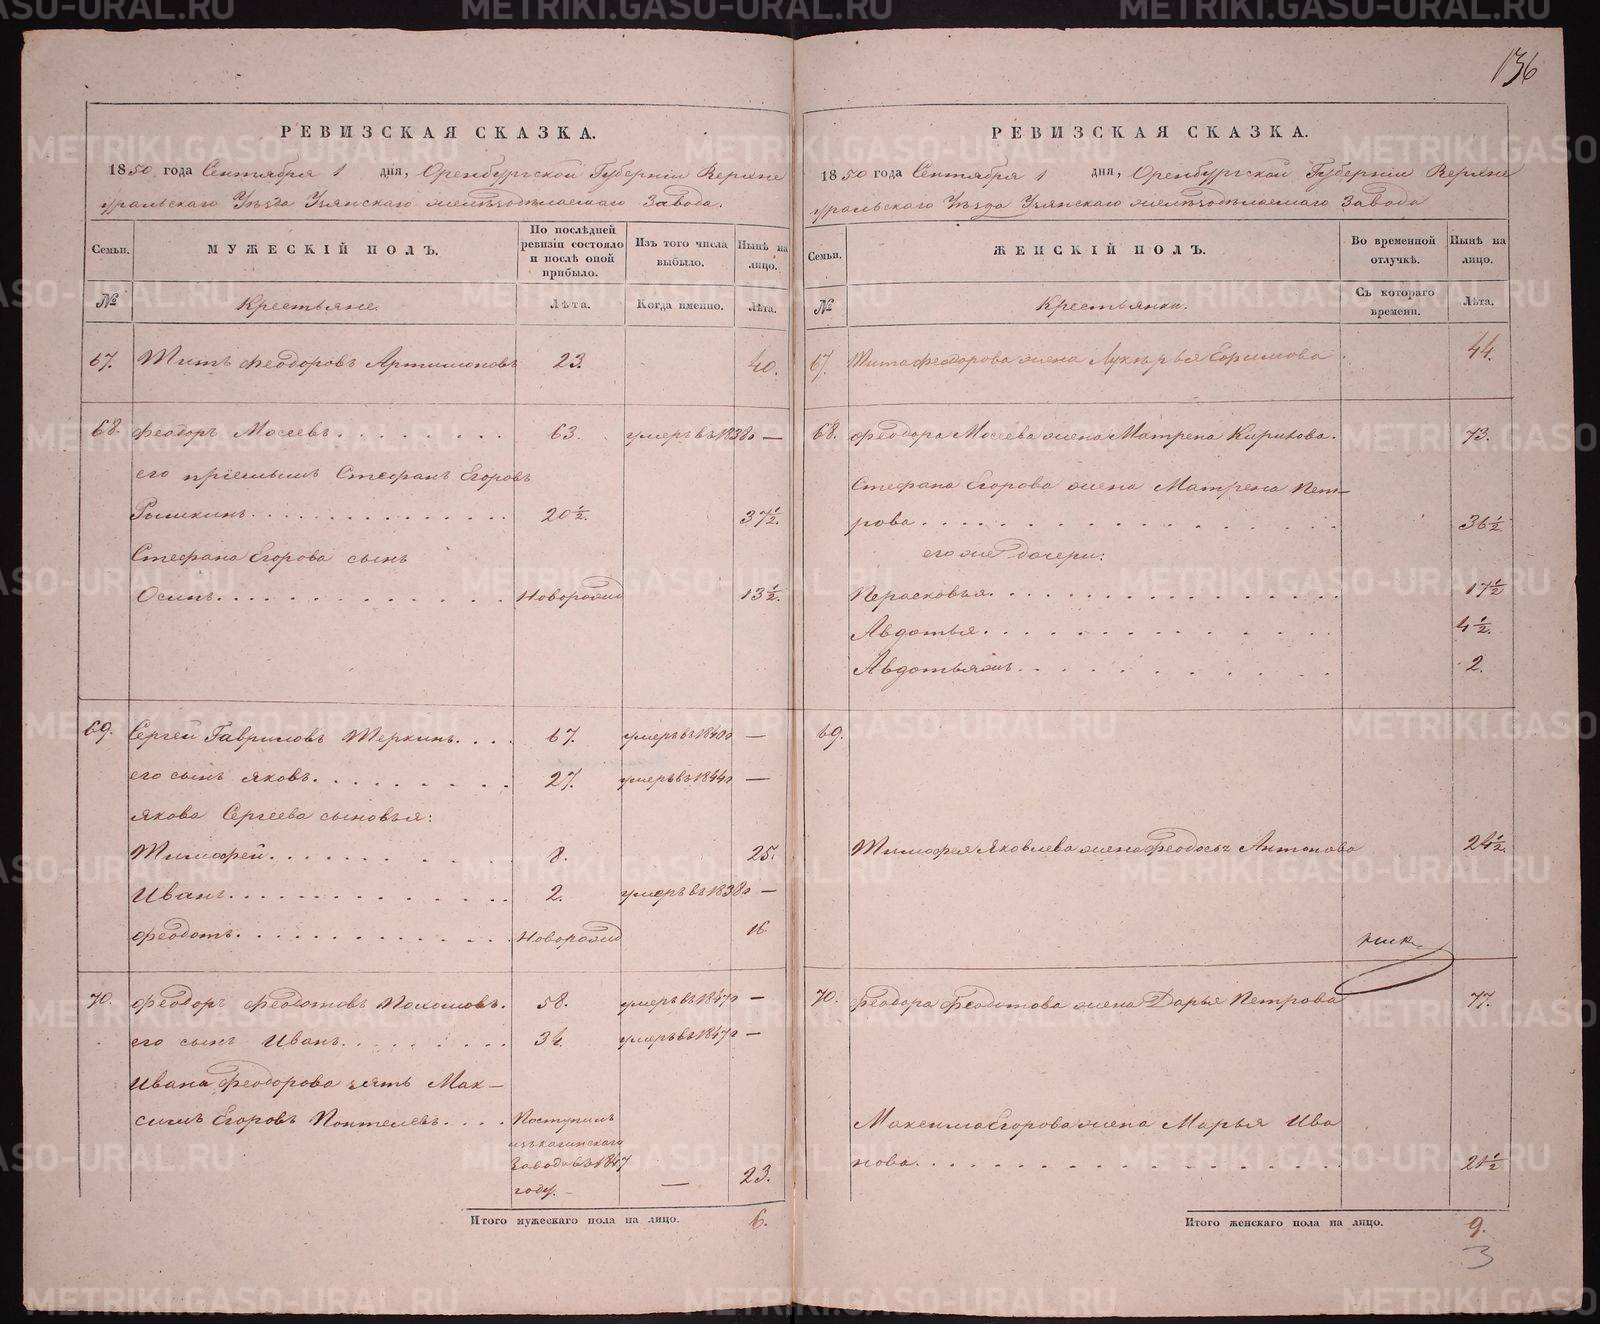 136
РЕВИЗСКАЯ СКАЗКА.
1850 года Сентября 1 дня, Оренбургской Губернiи Верхне
уральскаго Уѣзда Узянскаго желѣзодѣлаемаго Завода.
Семьи.
МУЖЕСКIЙ ПОЛЪ.
По послѣдней ревизiи состояло и послѣ оной прибыло.
Изъ того числа выбыло.
Нынѣ на лицо.
№
Крестьяне.
Лѣта.
Когда именно.
Лѣта.
67. Титъ Феодоровъ Артимоновъ 23. 40.
68. Феодоръ Мосеевъ 63. умеръ въ 1838 г —
его прiемышъ Стефанъ Егоровъ
20½. 37½.
Стефана Егорова сынъ
Осипъ Новорожд 13½.
69. Сергей Гавриловъ Теркинъ 67. умеръ въ 1840 г —
его сынъ Яковъ 27. умеръ въ 1844 г —
Якова Сергеева сыновья:
Тимофей 8. 25.
Иванъ 2. умеръ въ 1838 г —
Феодотъ Новорожд 16
70. Феодоръ Феодотовъ Пахомовъ. 58. умеръ въ 1847 г —
его сынъ Иванъ 34. умеръ въ 1847 г —
Ивана Феодорова зять Мак-
симъ Егоровъ Понтелевъ Поступилъ
изъ Кагинскаго
Завода въ 1847
году. — 23.
Итого мужескаго пола на лицо. 6.
РЕВИЗСКАЯ СКАЗКА.
1850 года Сентября 1 дня, Оренбургской Губернiи Верхне
уральскаго Уѣзда Узянскаго желѣзодѣлаемаго Завода
Семьи.
ЖЕНСКIЙ ПОЛЪ.
Во временной отлучкѣ.
Нынѣ на лицо.
№
Крестьянки.
Съ котораго времени.
Лѣта.
67. Тита Феодорова жена Лукерья Ефимова 44.
68. Феодора Мосеева жена Матрена Кирилова. 73.
Стефана Егорова жена Матрена Пет-
рова 36½
его же дочери:
Парасковья 17½
Авдотья 4½.
Авдотья жъ 2.
69.
Тимофея Яковлева жена Феодосья Антонова 24½.
70. Феодора Феодотова жена Дарья Петрова 77.
Максима Егорова жена Марья Ива
нова 21½
Итого женскаго пола на лицо. 9.
3
METRIKI.GASO-URAL.RU